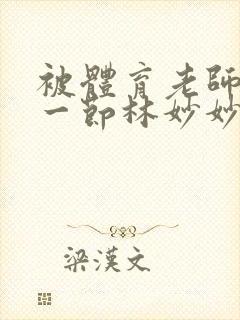 被體育老師
一節林妙妙
梁漢文